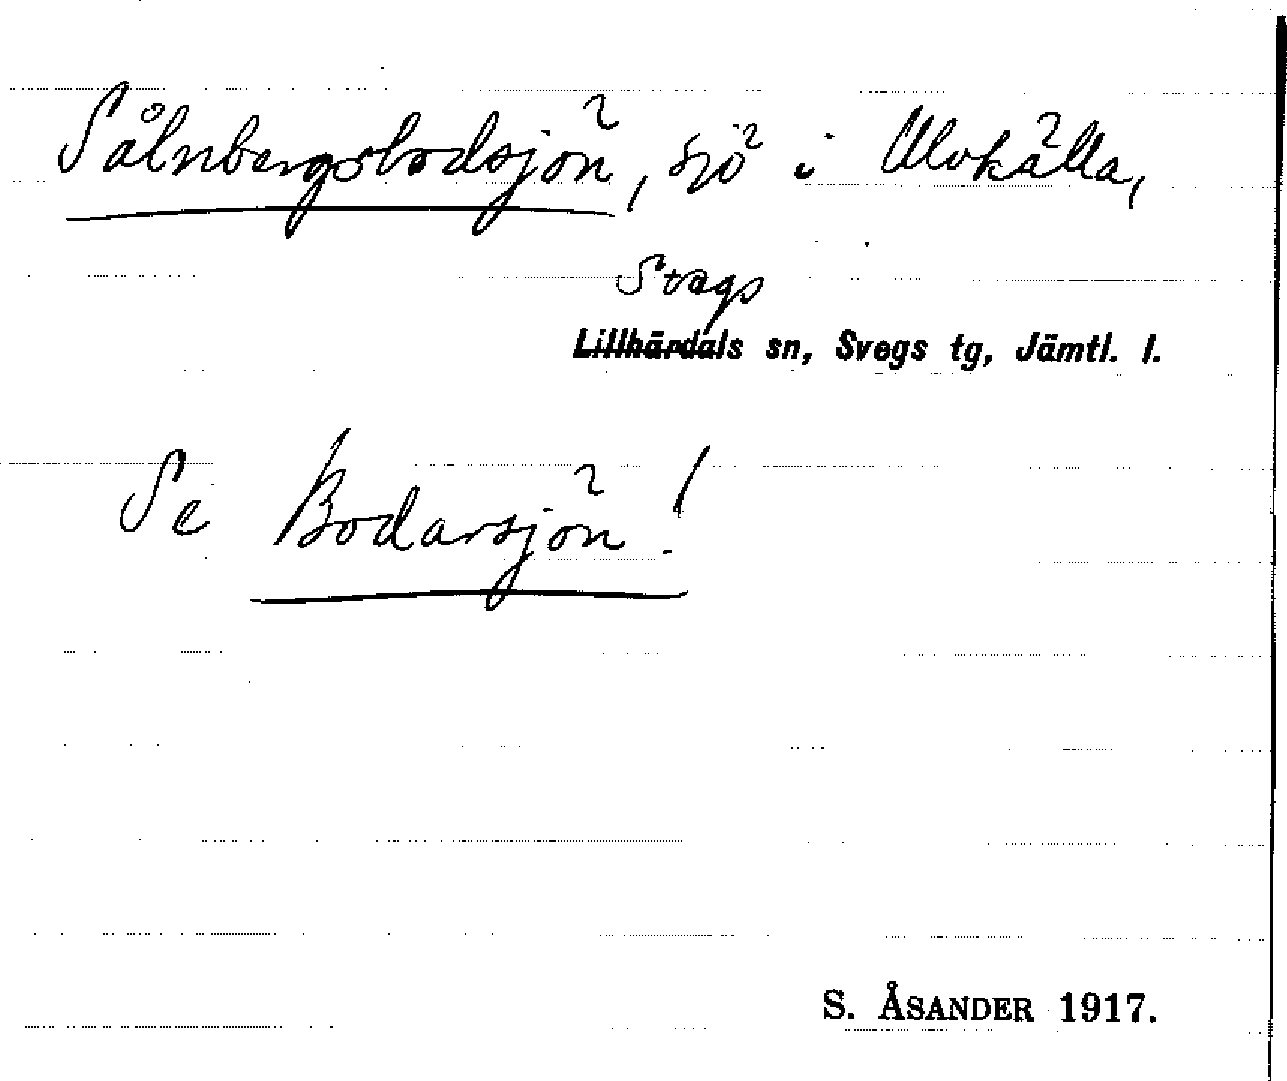 Sålnbergsbodsjön, sjö i Ulvkälla,
Svegs
Lillhärdals sn, Svegs tg, Jämtl. l.
Se Bodarsjön!
S. ÅSANDER 1917.